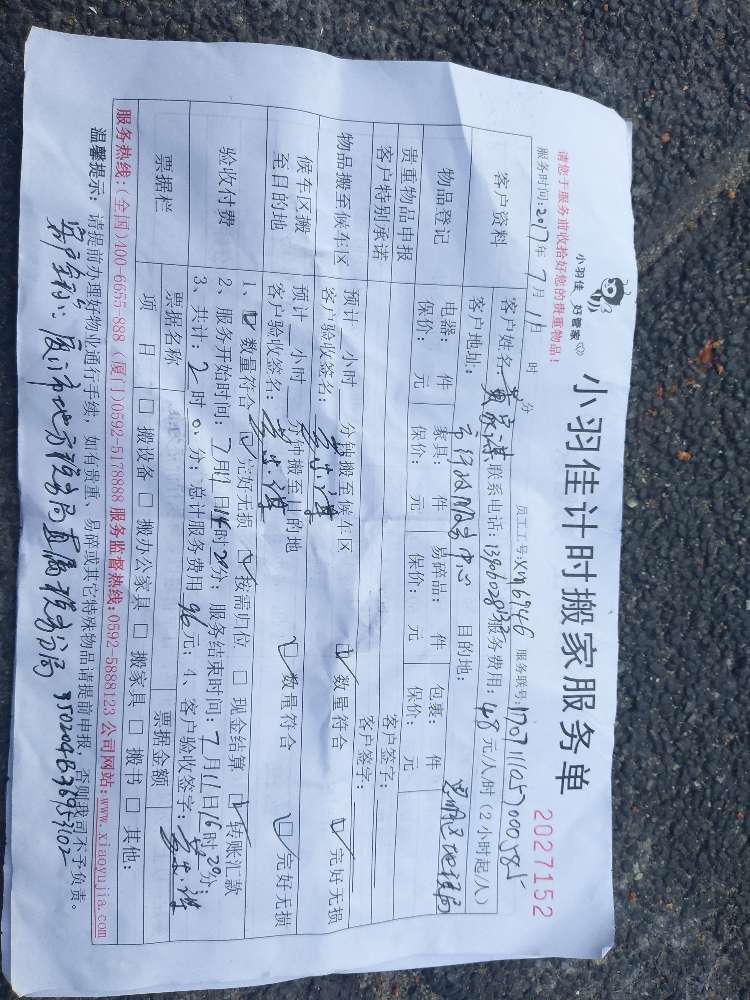 小羽佳 好管家
小羽佳计时搬家服务单
2027152
请您于服务前收拾好您的贵重物品!
员工工号:XM6946 服务联号:170711105000585
服务时间:2017年7月11日 时 分
客户资料
客户姓名: 联系电话: 服务费用:48元/小时(2小时起/人)
客户地址:市行政服务中心 目的地:思明区地税局
物品登记
电器: 件 家具: 件 易碎品: 件 包裹: 件
保价: 元 保价: 元 保价: 元 保价: 元
贵重物品申报 客户签字:
客户特别承诺 客户签字:
物品搬至候车区
预计 小时 分钟搬至候车区 ☑数量符合 ☑完好无损
客户验收签名:
候车区搬至目的地
预计 小时 分钟搬至目的地 ☑数量符合 ☑完好无损
客户验收签名:
验收付费
1、☑数量符合 ☑完好无损 ☑按需归位 □现金结算 ☑转账汇款
2、服务开始时间:7月11日14时20分;服务结束时间:7月11日16时20分;
3、共计:2时0分;总计服务费用96元;4、客户验收签字:
票据栏
票据名称 票据金额
项 目 □搬设备 □搬办公家具 □搬家具 □搬书 □其他:
服务热线:(全国)400-6655-888 (厦门)0592-5178888 服务监督热线:0592-5888123 公司网站:www.xiaoyujia.com
温馨提示: 请提前办理好物业通行手续,如有贵重、易碎或其它特殊物品请提前申报,否则我司不予负责。
客户全称:厦门市地方税务局直属税务分局